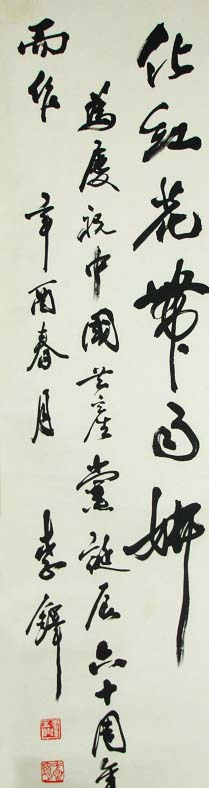 化紅花帶雨妍
為慶祝中國共產黨誕辰六十周年
而作 辛酉春月 李鐸